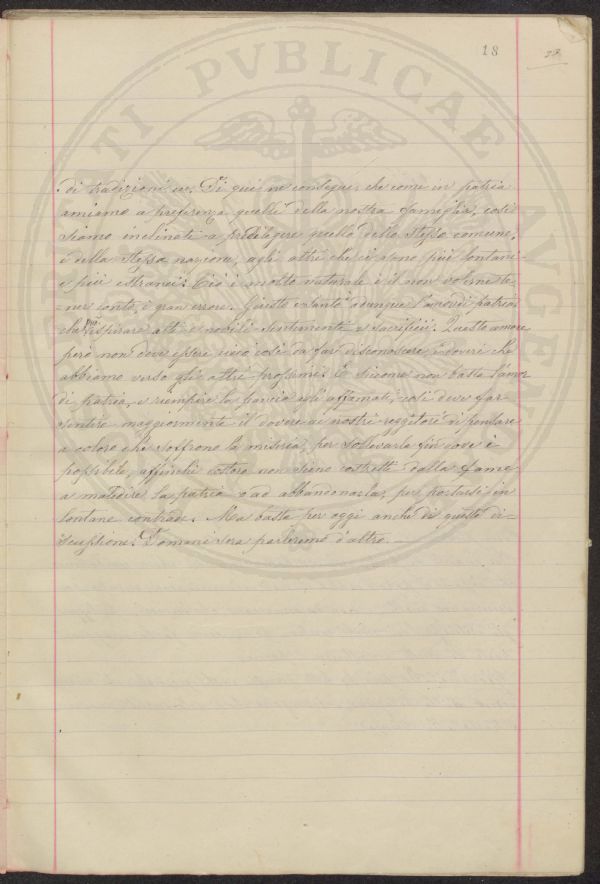 18
di tradizioni ec. Di qui ne consegue, che come in patria
amiamo a preferenza quelli della nostra famiglia, così
siamo inclinati a prediligere quelli dello stesso comune,
e della stessa nazione, agli altri che ci sono più lontani
e più estranei. Ciò è molto naturale e il non volerne te-
ner conto, è grave errore. Questo e tanto adunque l'amor di patria,
che può ispirare alti e nobili sentimenti e sacrifici. Questo amore
però non deve essere cieco così da far disconoscere i doveri che
abbiamo verso gli altri prossimi. E siccome non basta l'amor
di patria, a riempire la pancia agli affamati, così deve far
sentire maggiormente il dovere ai nostri reggitori di pensare
a coloro che soffrono la miseria, per sollevarla fin dove è
possibile, affinchè costoro non sieno costretti dalla fame
a maledire la patria o ad abbandonarla, per portarsi in
lontane contrade. Ma basta per oggi anche di questa di-
scussione. Domani sera parleremo d'altro. —